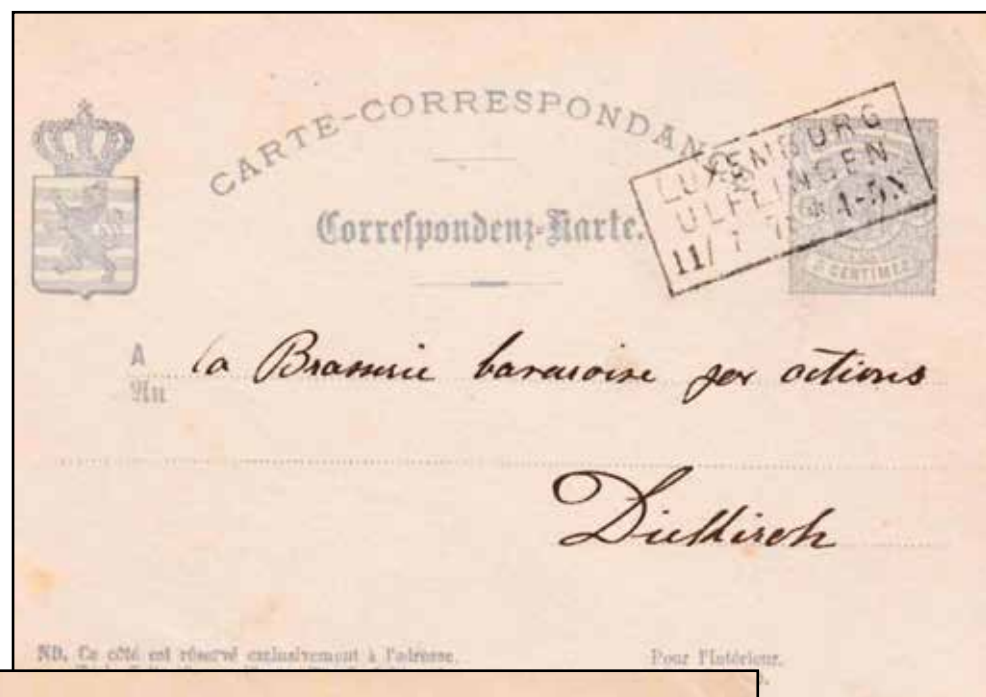 CARTE-CORRESPONDANCE
Correspondenz-Karte.
LUXEMBURG
ULFLINGEN
11/ 7 7
5 CENTIMES
A la Brasserie bavaroise par actions
An
Diekirch
NB. Ce côté est réservé exclusivement à l'adresse.
Pour l'Intérieur.